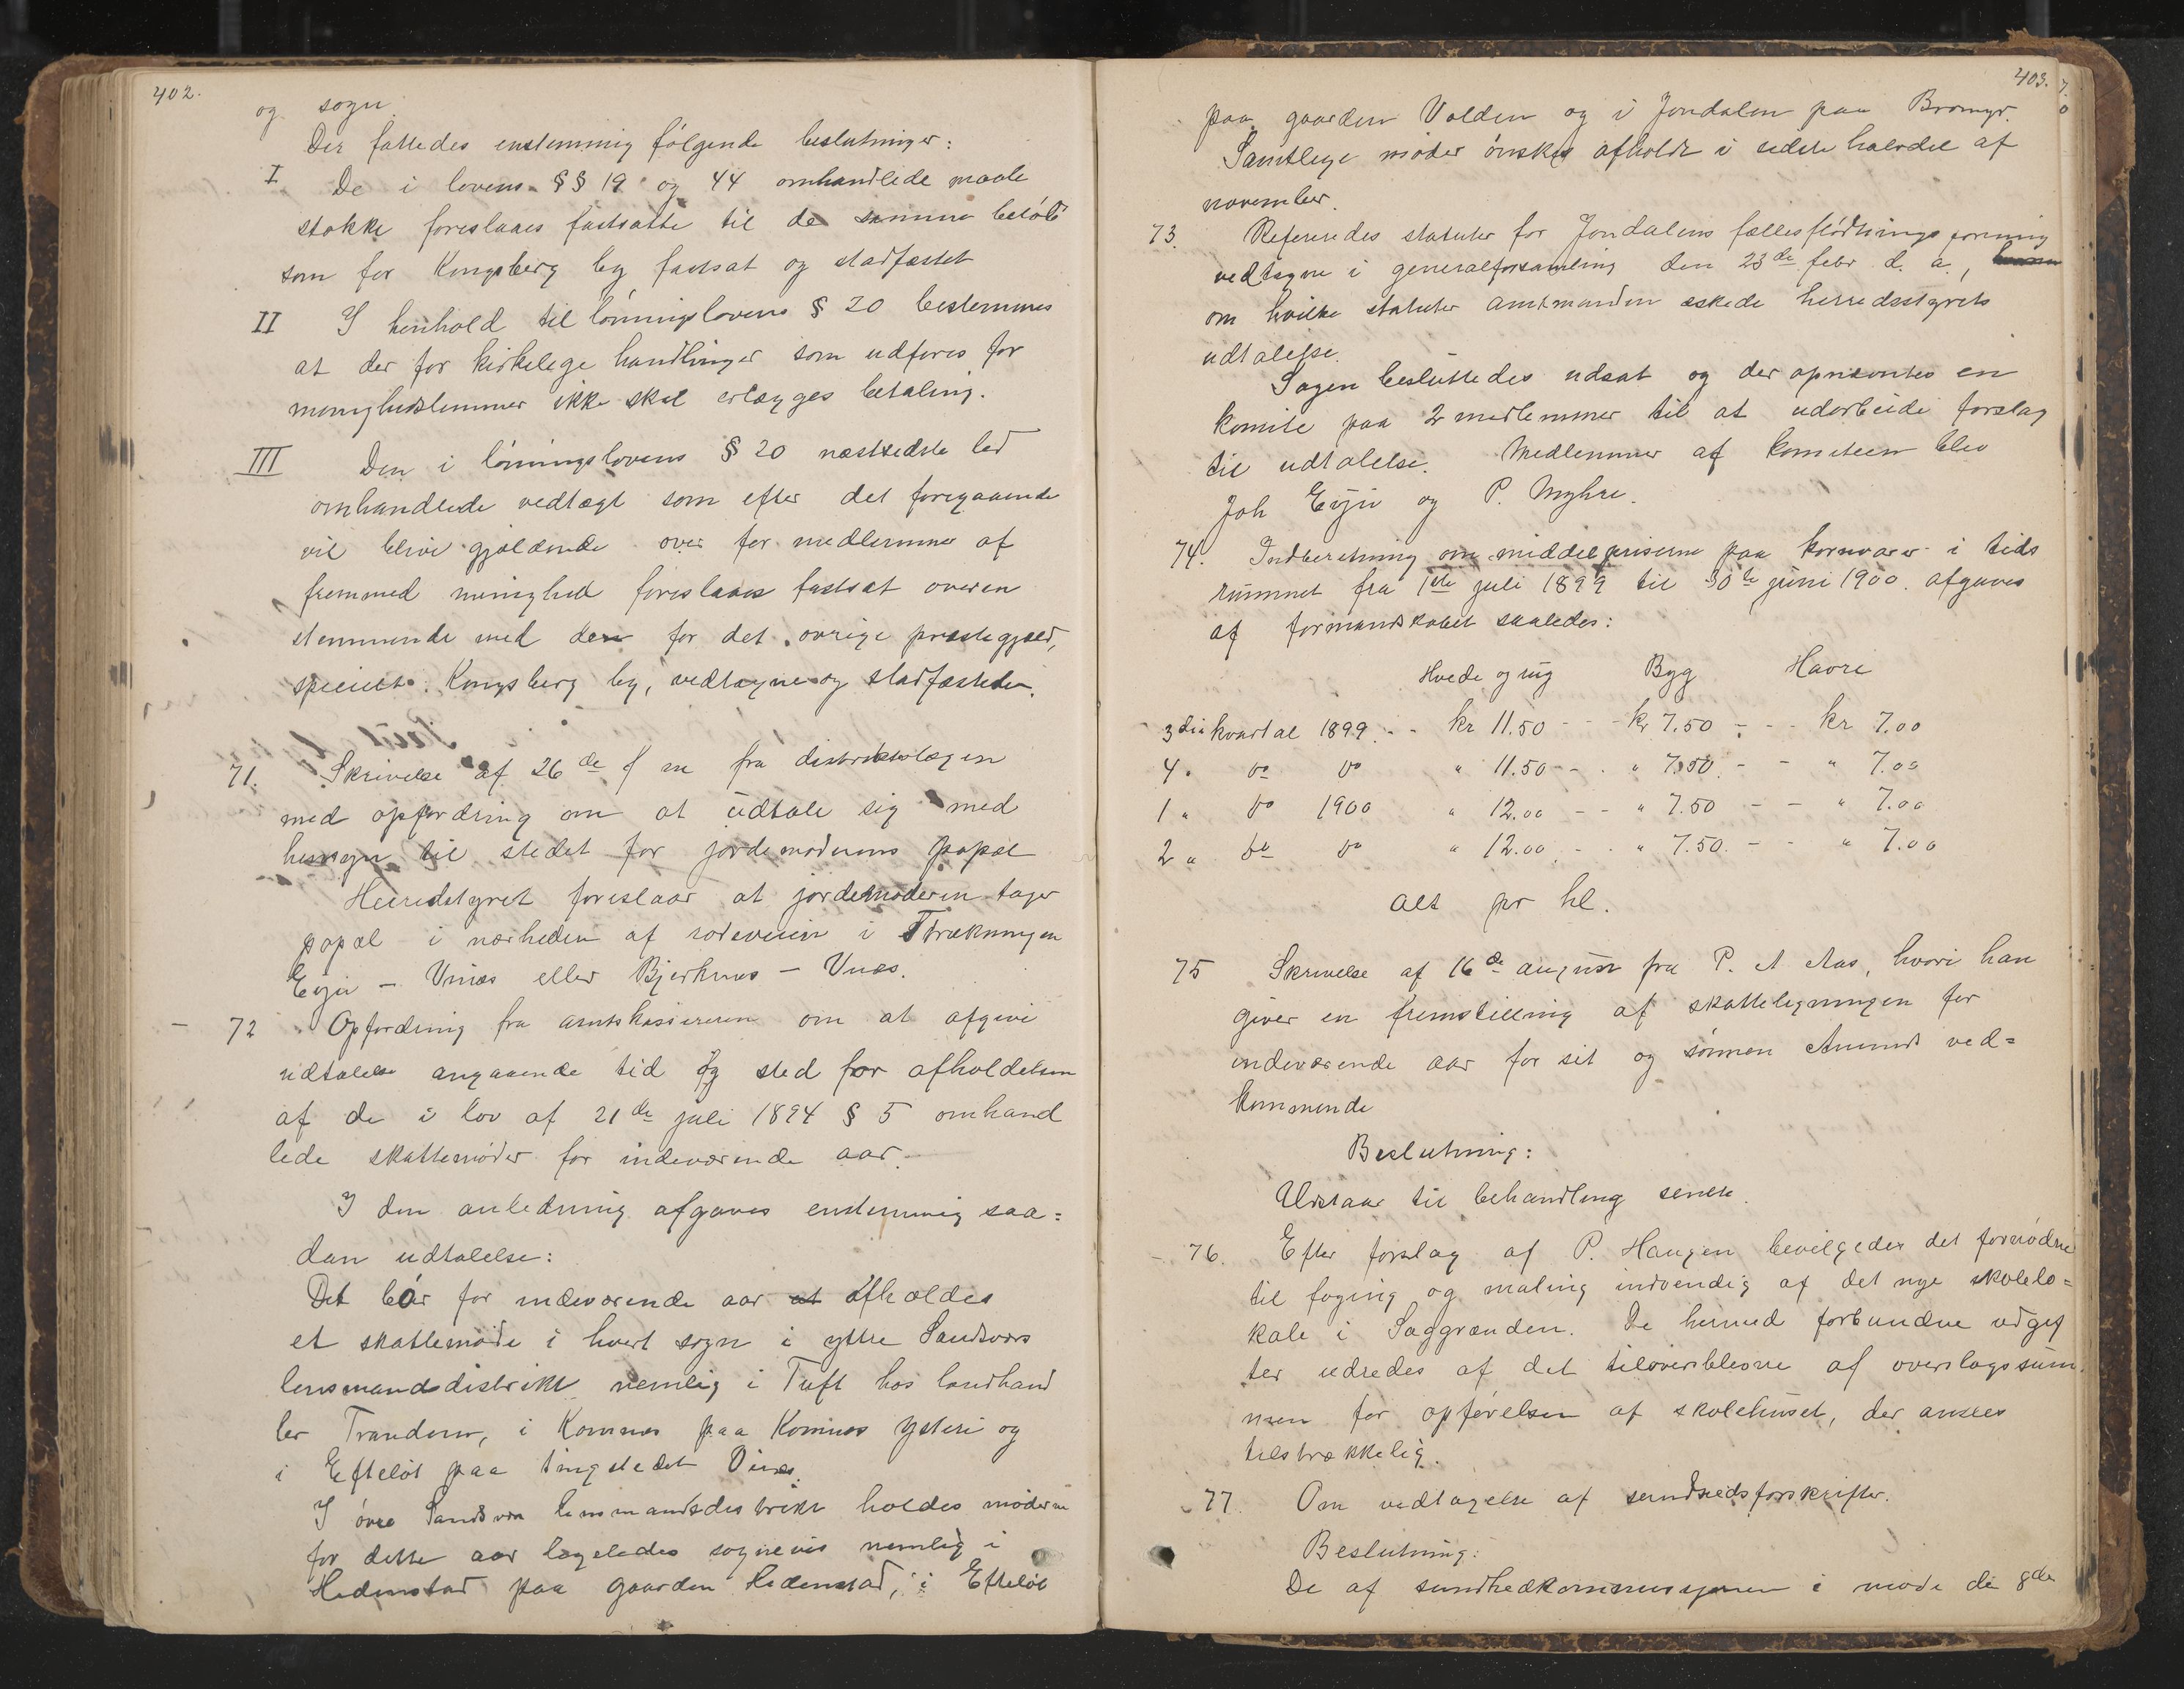 402.
og sogn
Der fattedes enstemmig følgende beslutninger:
I De i lovens §§ 19 og 44 omhandlede maale
stokke foreslaaes fastsatte til de samme beløb
som for Kongsberg by fastsat og stadfæstet
II I henhold til lønningslovens § 20 bestemmes
at der for kirkelege handlinger som udføres for
menighedslemmer ikke skal erlægges betaling.
III Den i lønningslovens § 20 næstsidste led
omhandlede vedtægt som efter det foregaaende
vil blive gjældende over for medlemmer af
fremmed menighed foreslaaes fastsat overen
stemmende med den for det øvrige præstegjæld,
specielt Kongsberg by, vedtagne og stadfæstede.
71. Skrivelse af 26de f m fra distriktslægen
med opfordring om at udtale sig med
hensyn til stedet for jordemoderens bopæl
Herredstyret foreslaar at jordemoderen tager
bopæl i nærheden af rodeveien i Strækningen
Eyju – Vinæs eller Bjerknes – Vnæs.
72 Opfordring fra amtskassereren om at afgive
udtalelse angaaende tid og sted for afholdelsen
af de i lov af 21de juli 1894 § 5 omhand
lede skattemøder for indeværende aar.
I den anledning afgaves enstemmig saa=
dan udtalelse:
Det bør for indeværende aar at afholdes
et skattemøde i hvert sogn i yttre Sandsværs
lensmandsdistrikt nemlig i Tuft hos landhand
ler Trandem, i Komnæs paa Komnæs Ysteri og
i Efteløt paa tingstedet
I øvre Sandsvær lensmandsdistrikt holdes møderne
for dette aar lageledes sognevis nemlig i
Hedenstad paa gaarden Hedenstad, i Efteløt
403.
paa gaarden Volden og i Jondalen paa Bromyr.
Samtlege møder ønskes afholdt i sidste halvdel af
november.
73. Refereredes statuter for Jondalens fællesfløtnings forening
vedtagne i generalforsamling den 23de febr d. a.,
om hvilke statuter amtmanden æskede herredsstyrets
udtalelse.
Sagen besluttedes udsat og der opnævntes en
komite paa 2 medlemmer til at udarbeide forslag
til udtalelse. Medlemmer af komiteen blev
Joh Eyju og P. Myhre.
74. Indberetning om middelpriserne paa kornvarer i tids
rummet fra 1ste juli 1899 til 30te juni 1900 afgaves
af formandskabet saaledes:
Hvede og rug Byg Havre
3die kvartal 1899 - - kr 11.50 - - - kr 7.50 - - - kr 7.00
4. do do " 11.50 - - " 7.50 - - " 7.00
1 " do 1900 " 12.00 - - " 7.50 - - " 7.00
2 " do do " 12.00 - - " 7.50 - - " 7.00
alt pr hl.
75 Skrivelse af 16de august fra P. A Aas, hvori han
giver en fremstilling af skatteligningen for
indeværende aar for sit og sønnen Amund ved=
kommende
Beslutning:
Udstaar til behandling senere.
76. Efter forslag af P. Haugen bevilgedes det fornødne
til foging og maling indvendig af det nye skolelo=
kale i Saggrænden. De hermed forbundne udgif
ter udredes af det tiloversblevne af overslagssum
men for opførelsen af skolehuset, der ansees
tilstrækkelig.
77. Om vedtagelse af sundhedsforskrifter.
Beslutning:
De af sundhedkommissjonen i møde de 8de